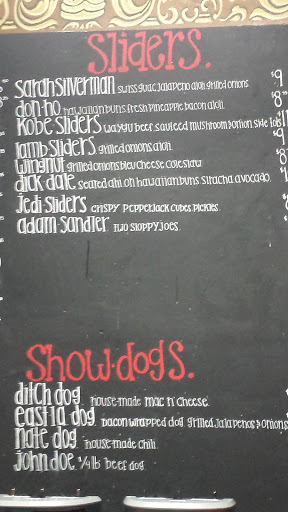 Sliders.
sarah silverman swiss guac jalapeno aioli grilled onions $9
don-ho hawaiian buns fresh pineapple bacon aioli 8
Kobe sliders wagyu beef, sauteed mushroom & onion,
lamb sliders grilled onions, aioli. $9
wingnut grilled onions bleu cheese coleslaw
dick dale seared ahi on hawaiian buns siracha avocado.
Jedi sliders crispy pepperjack cubes pickles.
adam sandler two sloppy joes.
Show-dogs.
ditch dog. house-made mac n' cheese.
east la dog. bacon wrapped dog grilled jalapenos & onions
nate dog. house-made chili.
john doe. 1/4 lb beef dog